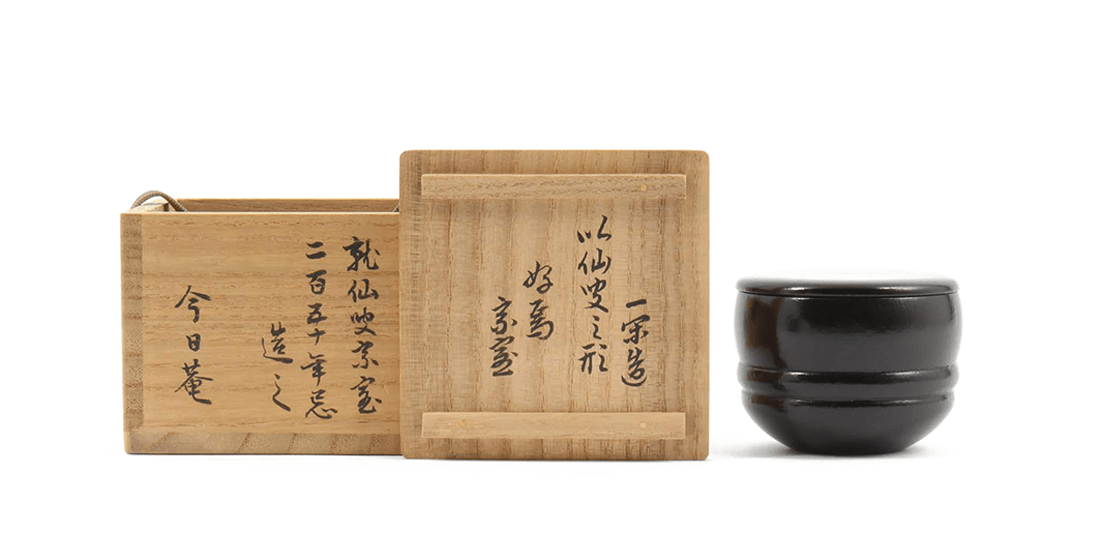 就仙叟宗室
二百五十年忌
造之
今日菴
一閑造
以仙叟之形
好焉
宗室